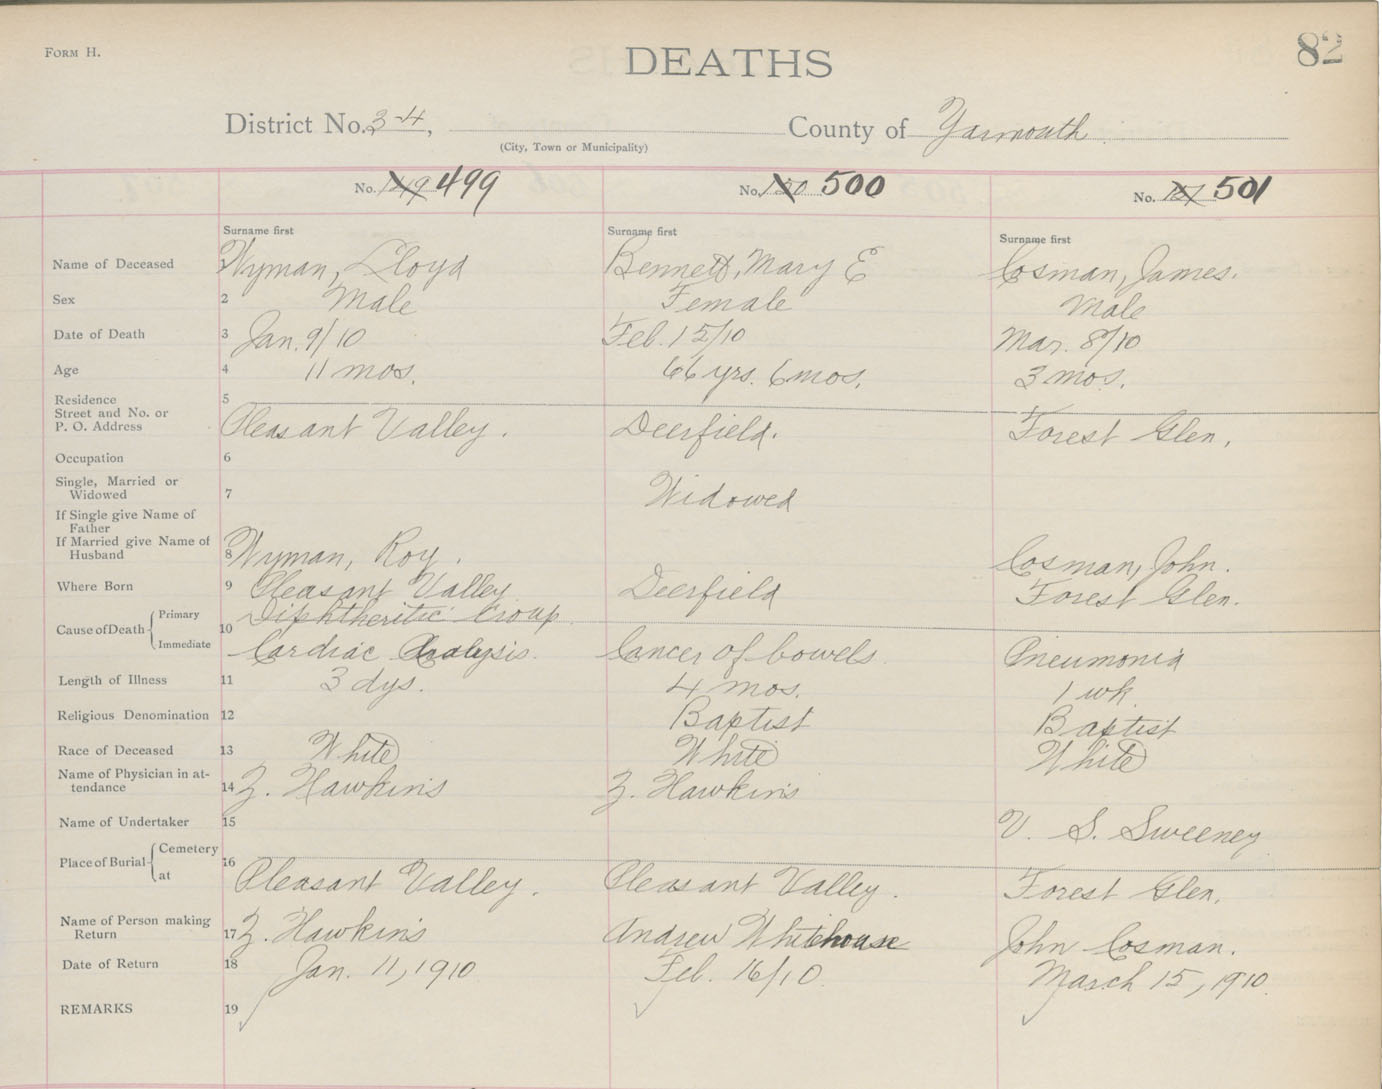 FORM H.
DEATHS
82
District No. 34, County of Yarmouth
(City, Town or Municipality)
No. 149 499 No. 150 500 No. 151 501
Surname first Surname first Surname first
Name of Deceased 1 Wyman, Lloyd Bennett, Mary E Cosman, James.
Sex 2 Male Female Male
Date of Death 3 Jan. 9/10 Feb. 15/10 Mar. 8/10
Age 4 11 mos. 66 yrs. 6 mos. 3 mos.
Residence 5
Street and No. or
P. O. Address Pleasant Valley. Deerfield. Forest Glen.
Occupation 6
Single, Married or
Widowed 7 Widowed
If Single give Name of
Father
If Married give Name of
Husband 8 Wyman, Roy. Cosman, John.
Where Born 9 Pleasant Valley Deerfield Forest Glen.
Cause of Death Primary Diphtheritic Croup
10
Immediate Cardiac Paralysis. Cancer of bowels. Pneumonia
Length of Illness 11 3 dys. 4 mos. 1 wk
Religious Denomination 12 Baptist Baptist
Race of Deceased 13 White White White
Name of Physician in at-
tendance 14 Z. Hawkins Z. Hawkins
Name of Undertaker 15 V. S. Sweeney
Place of Burial Cemetery
16
at Pleasant Valley. Pleasant Valley. Forest Glen.
Name of Person making
Return 17 Z. Hawkins Andrew Whitehouse John Cosman.
Date of Return 18 Jan. 11, 1910 Feb. 16/10. March 15, 1910.
REMARKS 19